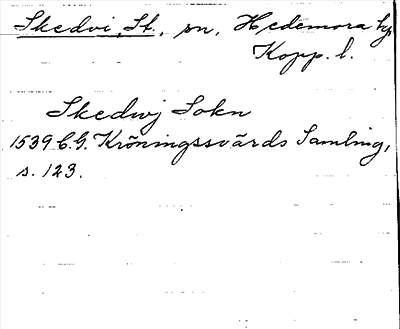 Skedvi, St., sn, Hedemora tg
Kopp. l.
Skedwj Sokn
1539 C.G. Kröningssvärds Samling,
s. 123.